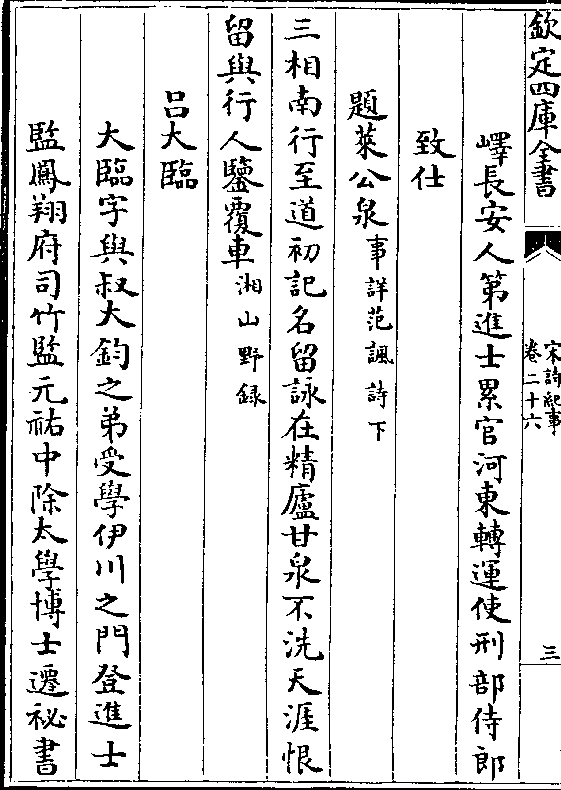 欽定四庫全書
宋詩紀事
卷二十六
三
嶧長安人第進士累官河東轉運使刑部侍郎
致仕
題萊公泉事詳范諷詩下
三相南行至道初記名留詠在精廬甘泉不洗天涯恨
留與行人鑒覆車湘山野錄
呂大臨
大臨字與叔大鈞之弟受學伊川之門登進士
監鳳翔府司竹監元祐中除太學博士遷秘書